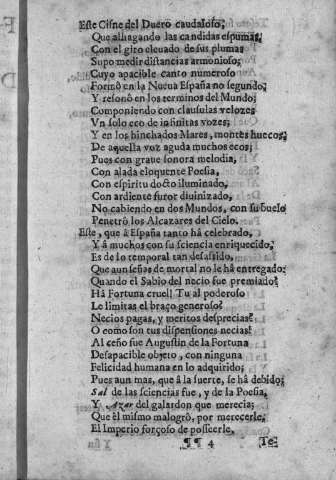 Este Cisne del Duero caudaloso,
Que alhagando las candidas espumas,
Con el giro eleuado de sus plumas
Supo medir distancias armonioso,
Cuyo apacible canto numeroso
Formò en la Nueua España no segundo,
Y resonò en los terminos del Mundo;
Componiendo con clausulas velozes
Vn solo eco de infinitas vozes,
Y en los hinchados Mares, montes huecos,
De aquella voz aguda muchos ecos;
Pues con graue sonora melodia,
Con alada eloquente Poesia,
Con espiritu docto iluminado,
Con ardiente furor diuinizado,
No cabiendo en dos Mundos, con su buelo
Penetrò los Alcazares del Cielo.
Este, que à España tanto hà celebrado,
Y à muchos con su sciencia enriquecido,
Es de lo temporal tan desasido,
Que aun señas de mortal no le hà entregado:
Quando el Sabio del necio fue premiado?
Hà Fortuna cruel! Tu al poderoso
Le limitas el braço generoso?
Necios pagas, y meritos desprecias?
O como son tus dispensiones necias!
Al ceño fue Augustin de la Fortuna
Desapacible objeto, con ninguna
Felicidad humana en lo adquirido;
Pues aun mas, que à la suerte, se hà debido;
Sal de las sciencias fue, y de la Poesia,
Y Azar del galardon que merecia;
Que èl mismo malogrò, por merecerle,
El Imperio forçoso de posseerle.
¶¶ 4
Te-